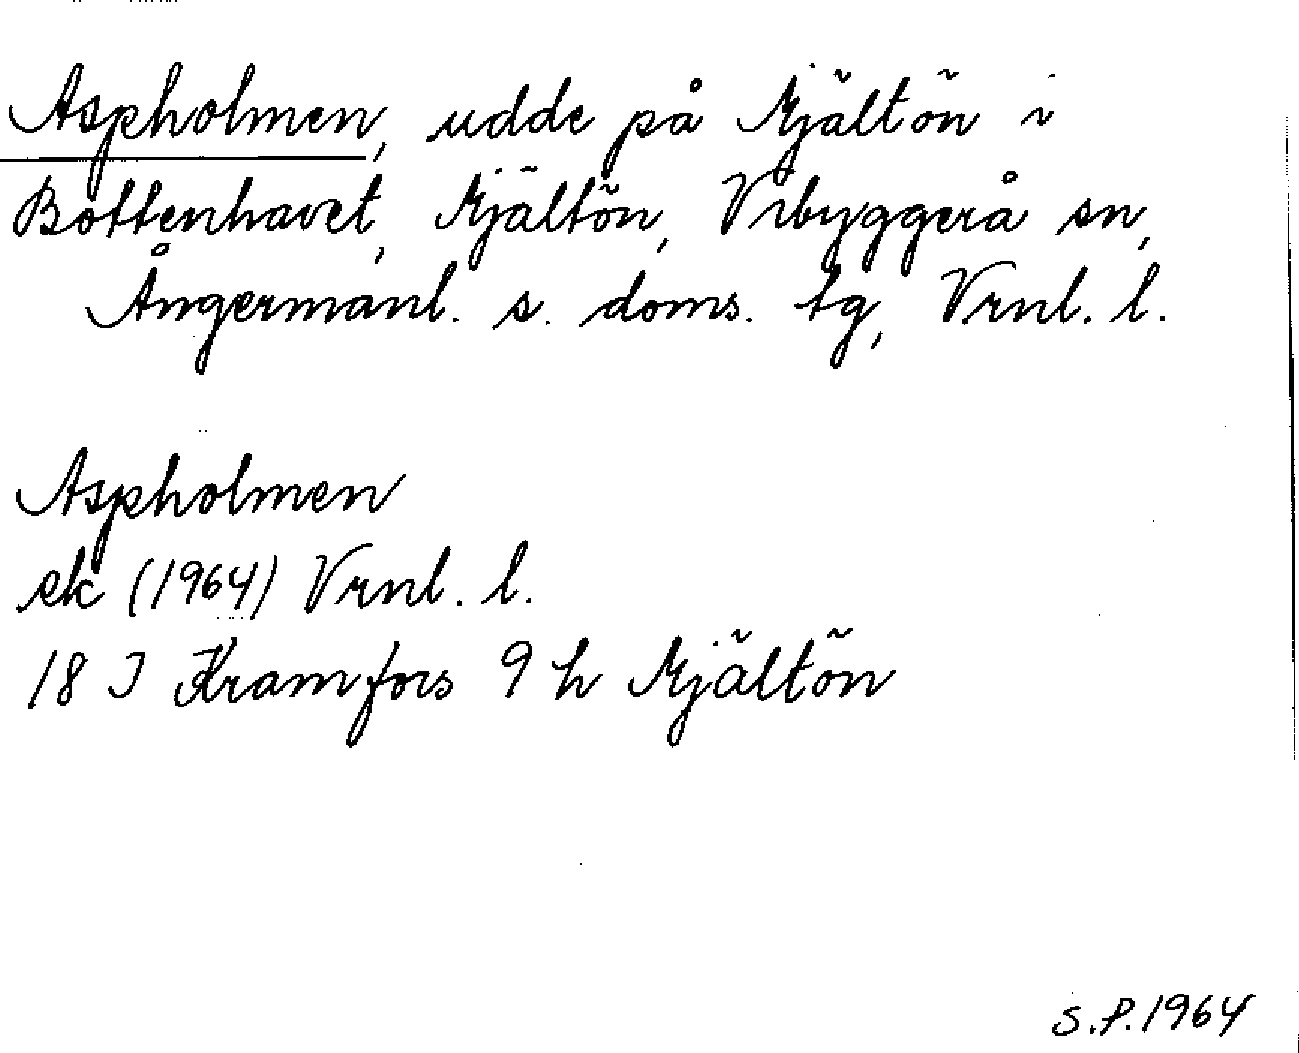 Aspholmen, udde på Mjältön i
Bottenhavet, Mjältön, Vibyggerå sn,
Ångermanl. s. doms. tg, Vrnl. l.
Aspholmen
ek (1964) Vrnl. l.
18 I Kramfors 9 h Mjältön
S.P. 1964